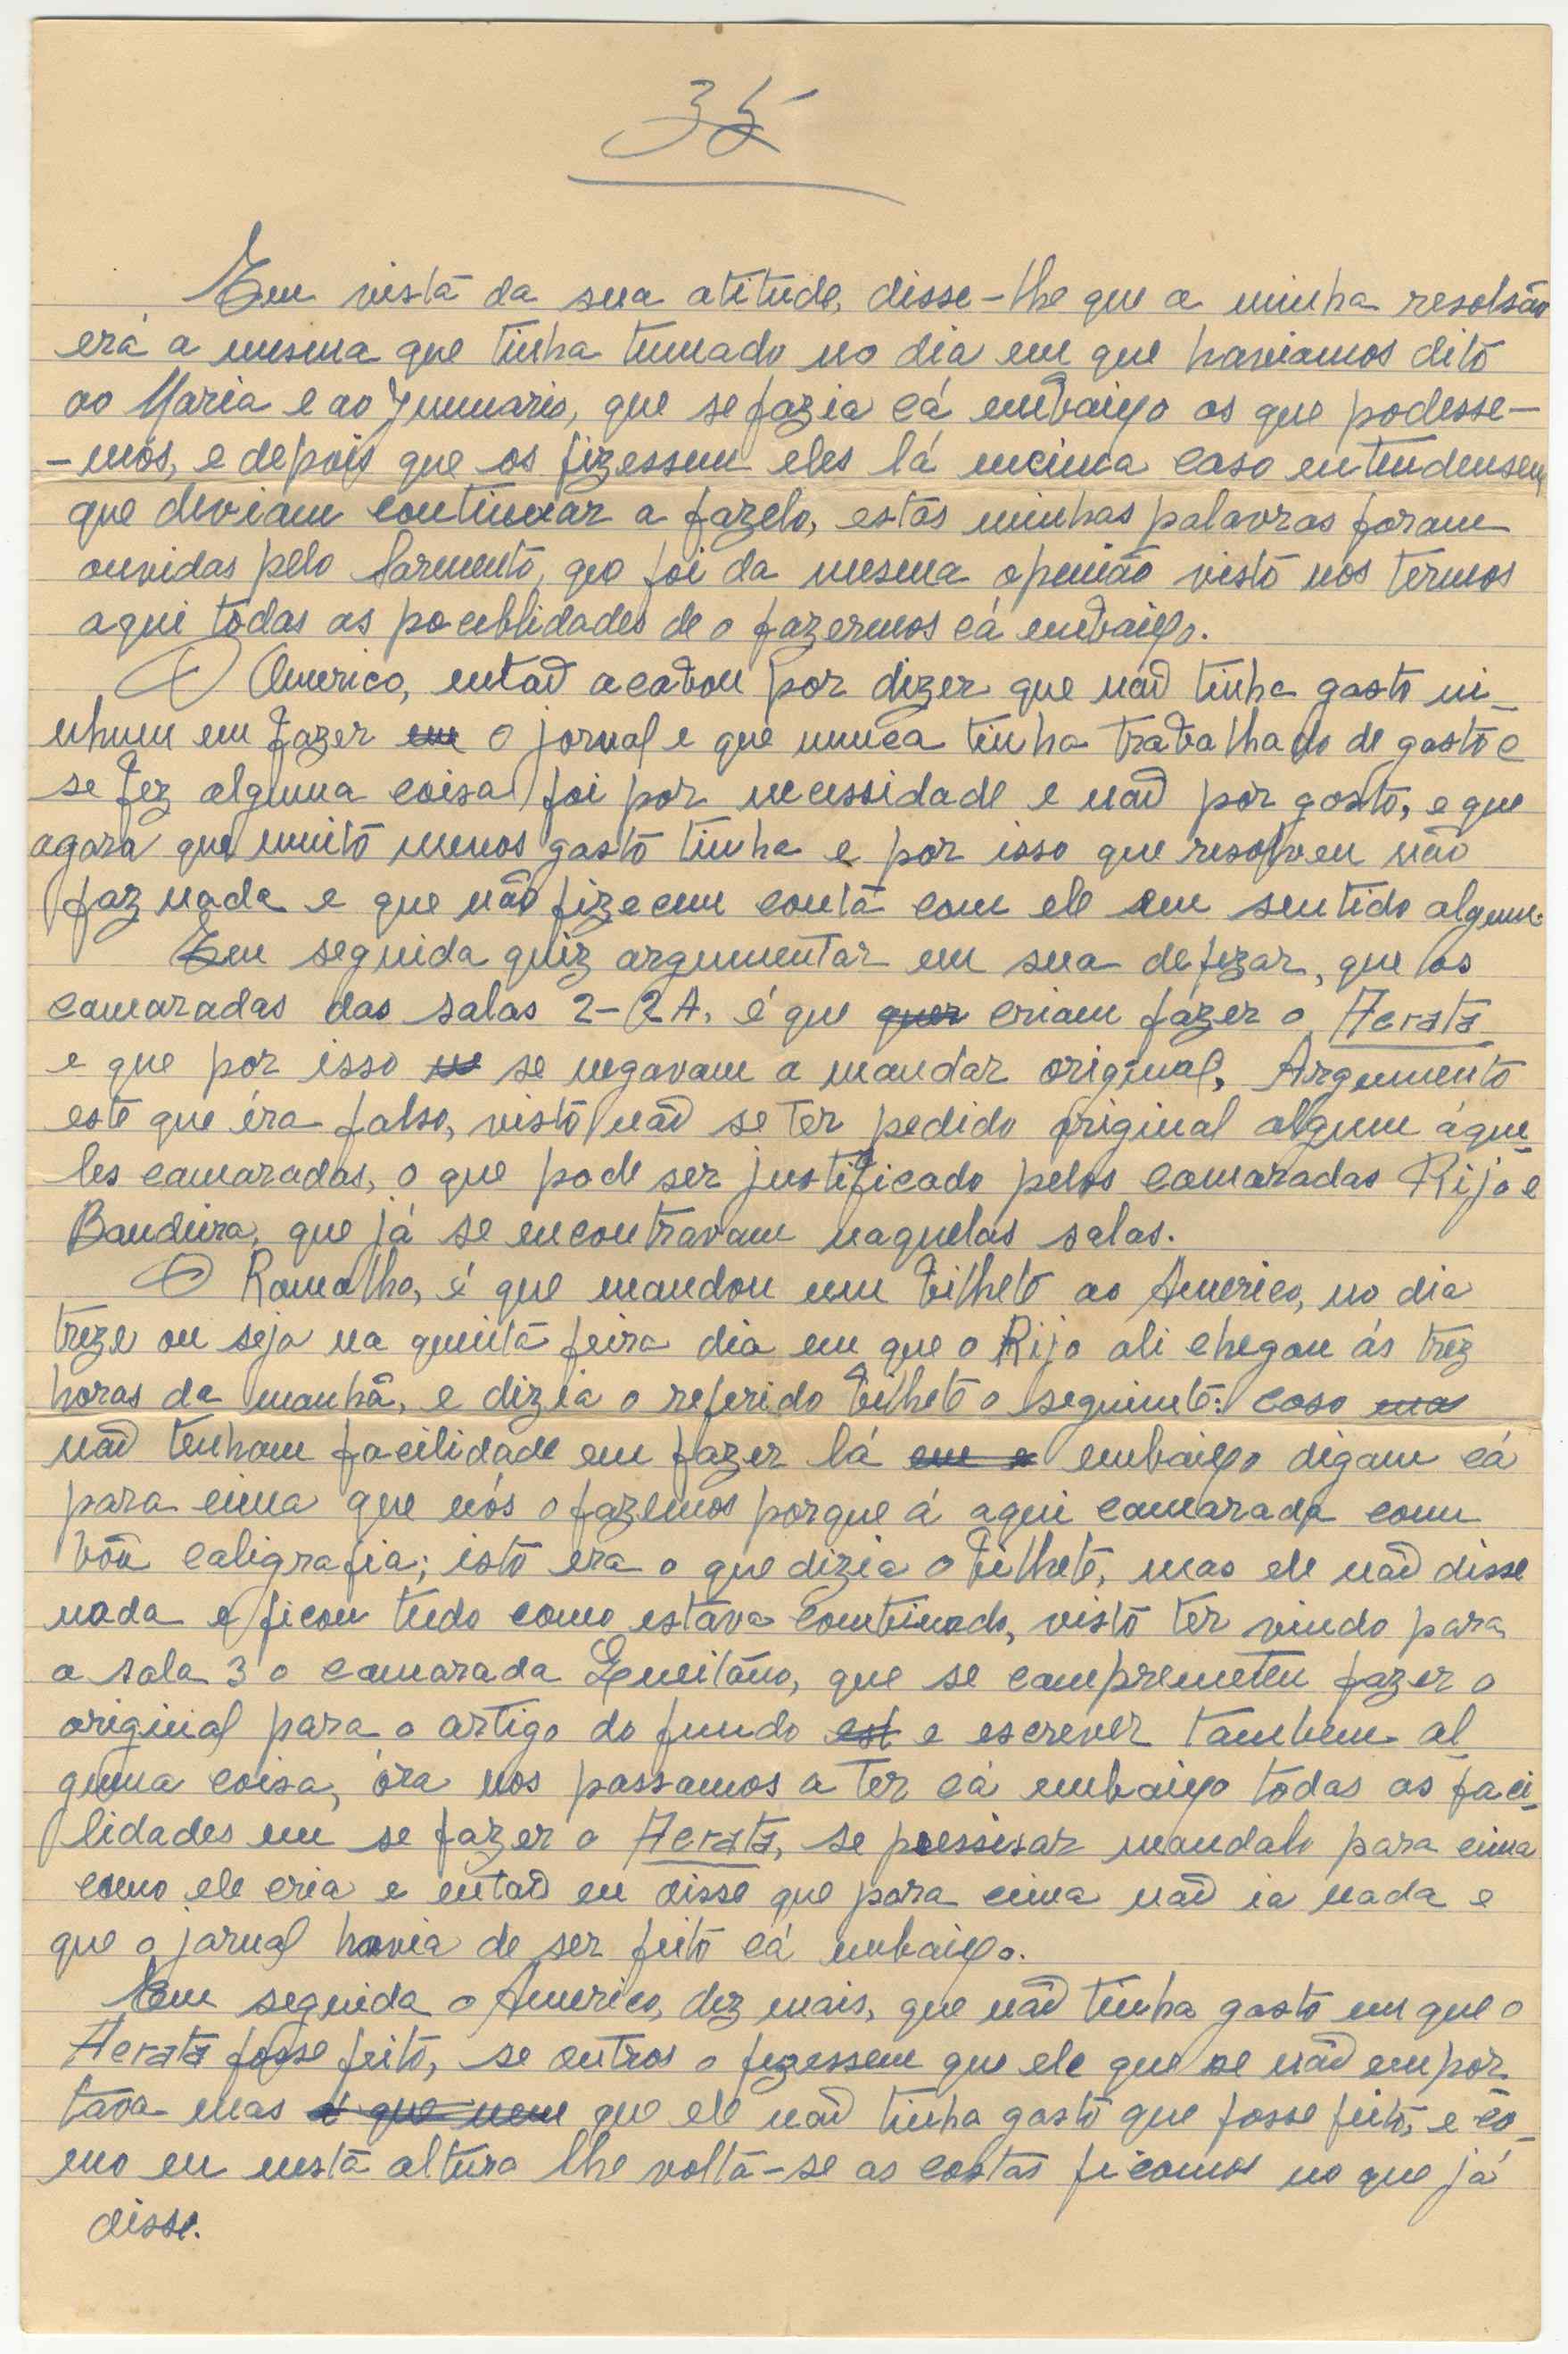 35
Em vista da sua atitude, disse-lhe que a minha resolsão
erá a mesma que tinha tumado no dia em que haviamos dito
ao Maria e ao Jumuario, que se fazia cá embaixo os que podesse-
-mos, e depois que os fizessem eles lá encima caso entendensem
que deviam continuar a fazelo, estas minhas palavras foram
ouvidas pelo Sarmento, que foi da mesma openião visto nos termos
aqui todas as pociblidades de o fazermos cá embaixo.
O Americo, então acabou por dizer que não tinha gosto ni-
nhum em fazer em o jornal e que nunca tinha trabalhado de gosto e
se fez alguma coisa foi por necessidade e não por gosto, e que
agora que muito menos gosto tinha e por isso que resolveu não
faz nada e que não fizecem conta com ele em sentido algum.
Em seguida quiz argumentar em sua defezar, que os
camaradas das salas 2-2A, é que quer criam fazer o Aerata
e que por isso se negavam a mandar original, Argumento
este que éra falso, visto não se ter pedido original algum áque-
les camaradas, o que pode ser justificado pelos camaradas Rijo e
Bandeira, que já se encontravam naquelas salas.
O Ramalho, é que mandou um bilhete ao Americo, no dia
treze ou seja na quinta feira dia em que o Rijo ali chegou ás trez
horas da manhã, e dizia o referido bilhete o seguinte: caso
não tenham facilidade em fazer lá em embaixo digam cá
para cima que nós o fazemos porque á aqui camarada com
bôa caligrafia; isto era o que dizia o bilhete, mas ele não disse
nada e ficou tudo como estava combinado, visto ter vindo para
a sala 3 o camarada que se compremeteu fazer o
original para o artigo do fundo est e escrever tambem al-
guma coisa, óra nos passamos a ter cá embaixo todas as faci-
lidades em se fazer o Aerata, se pressisar mandalo para cima
como ele cria e então eu disse que para cima não ia nada e
que o jornal havia de ser feito cá embaixo.
Em seguida o Americo, dez mais, que não tinha gosto em que o
Aerata fosse feito, se outros o fizessem que ele que se não empor
tava mas e que nem que ele não tinha gosto que fosse feito, e co-
mo eu nesta altura lhe volta-se as costas ficamos no que já
disse.